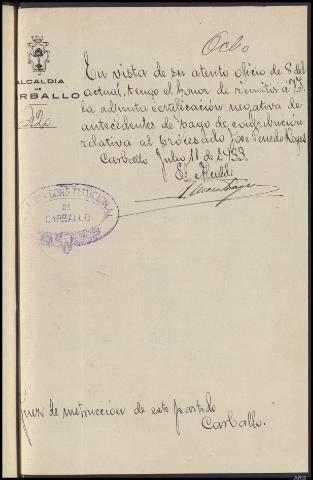 Ocho
ALCALDÍA
DE
CARBALLO
En vista de su atento oficio de 8 del
actual, tengo el honor de remitir a V.
la adjunta certificación negativa de
antecedentes de pago de contribución
relativa al procesado José Penedo Reyes
Carballo Julio 11 de 1933.
El Alcalde
CONSTITUCIONAL
DE
CARBALLO
Juez de instrucción de este partido
Carballo.